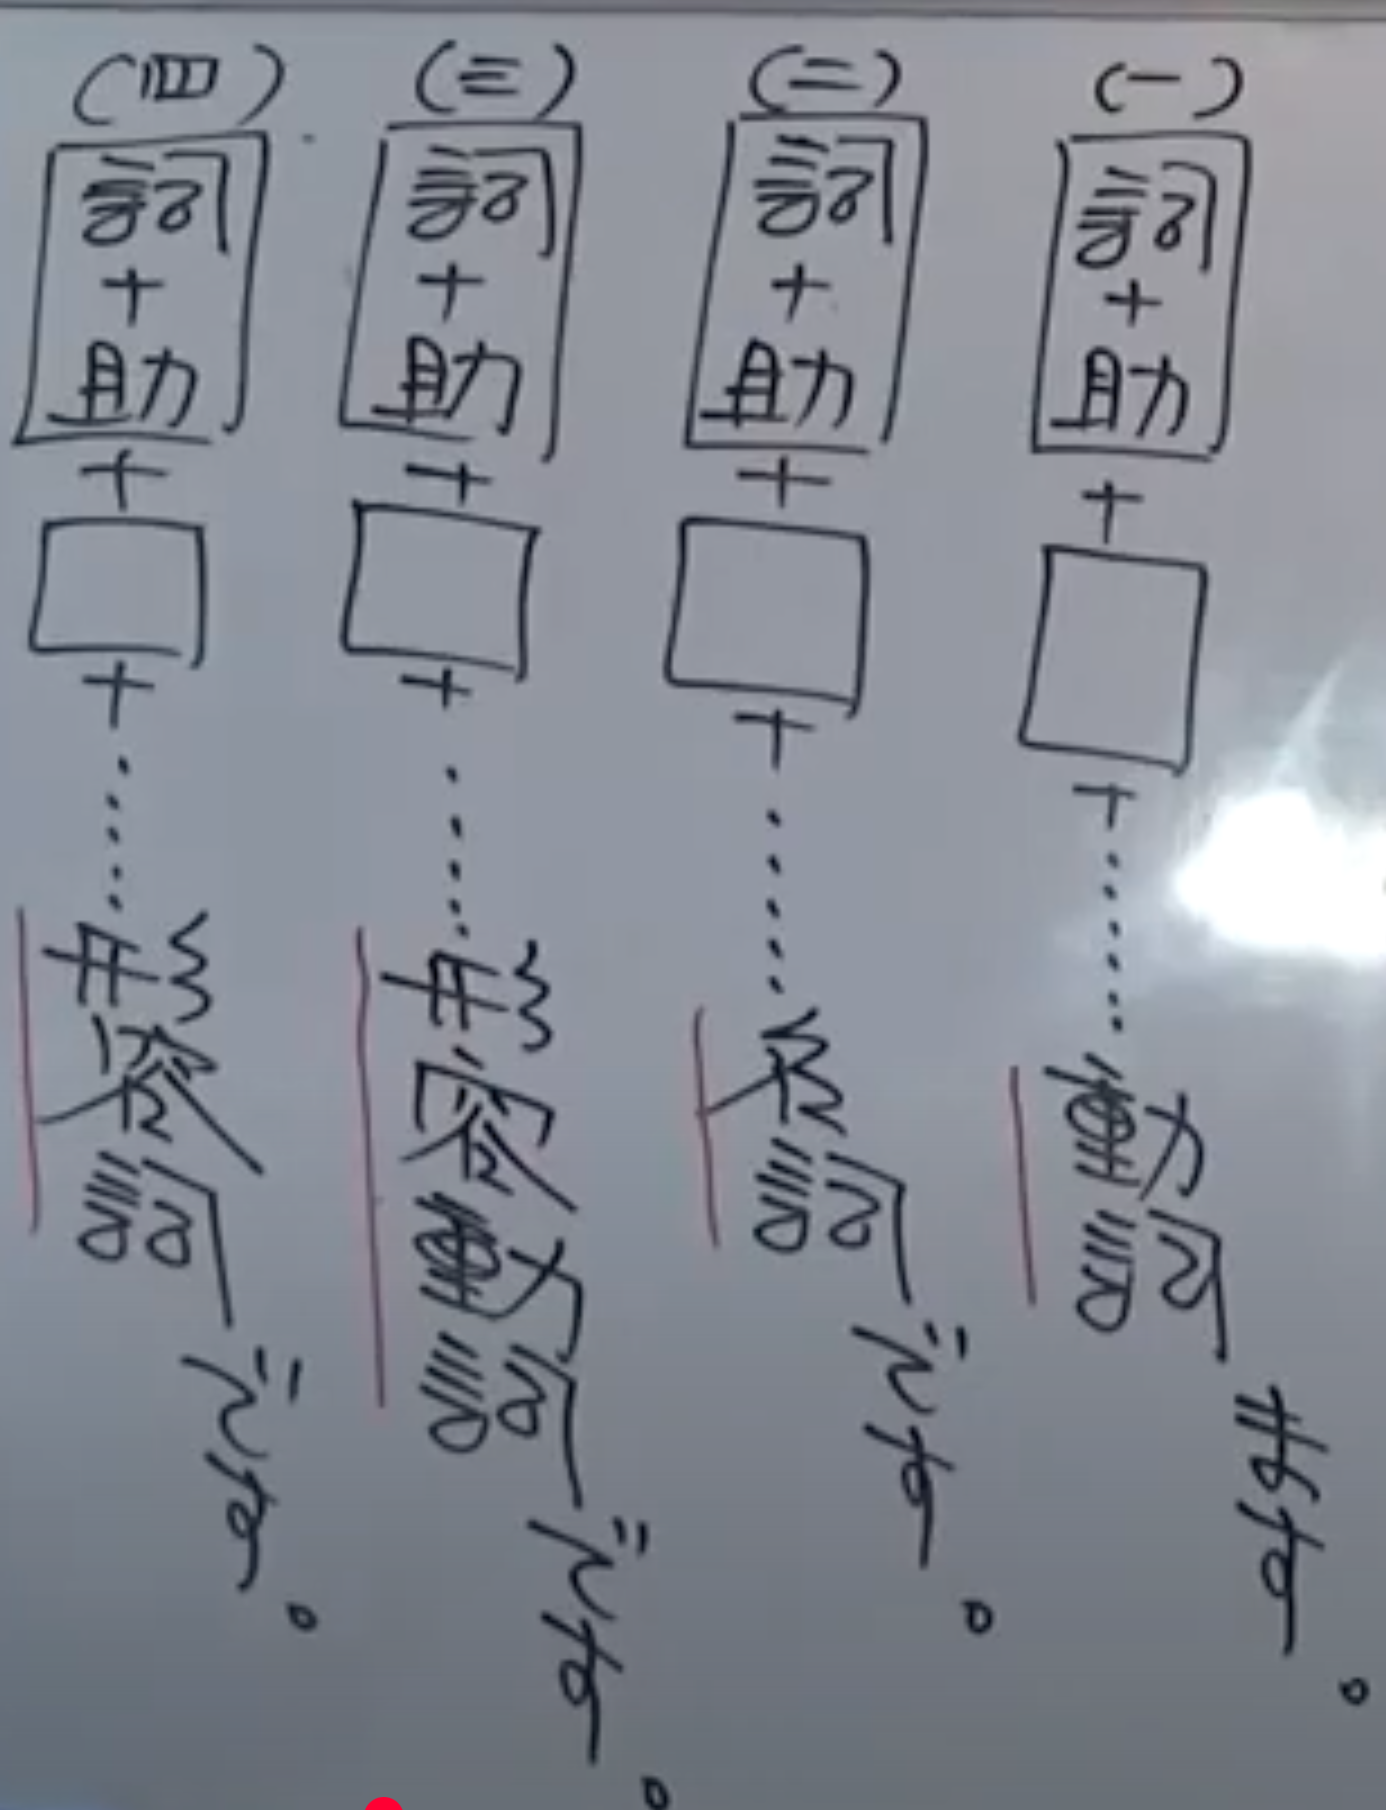 (一)詞+助+□+……動詞ます。
(二)詞+助+□+……名詞です。
(三)詞+助+□+……形容動詞です。
(四)詞+助+□+……形容詞です。